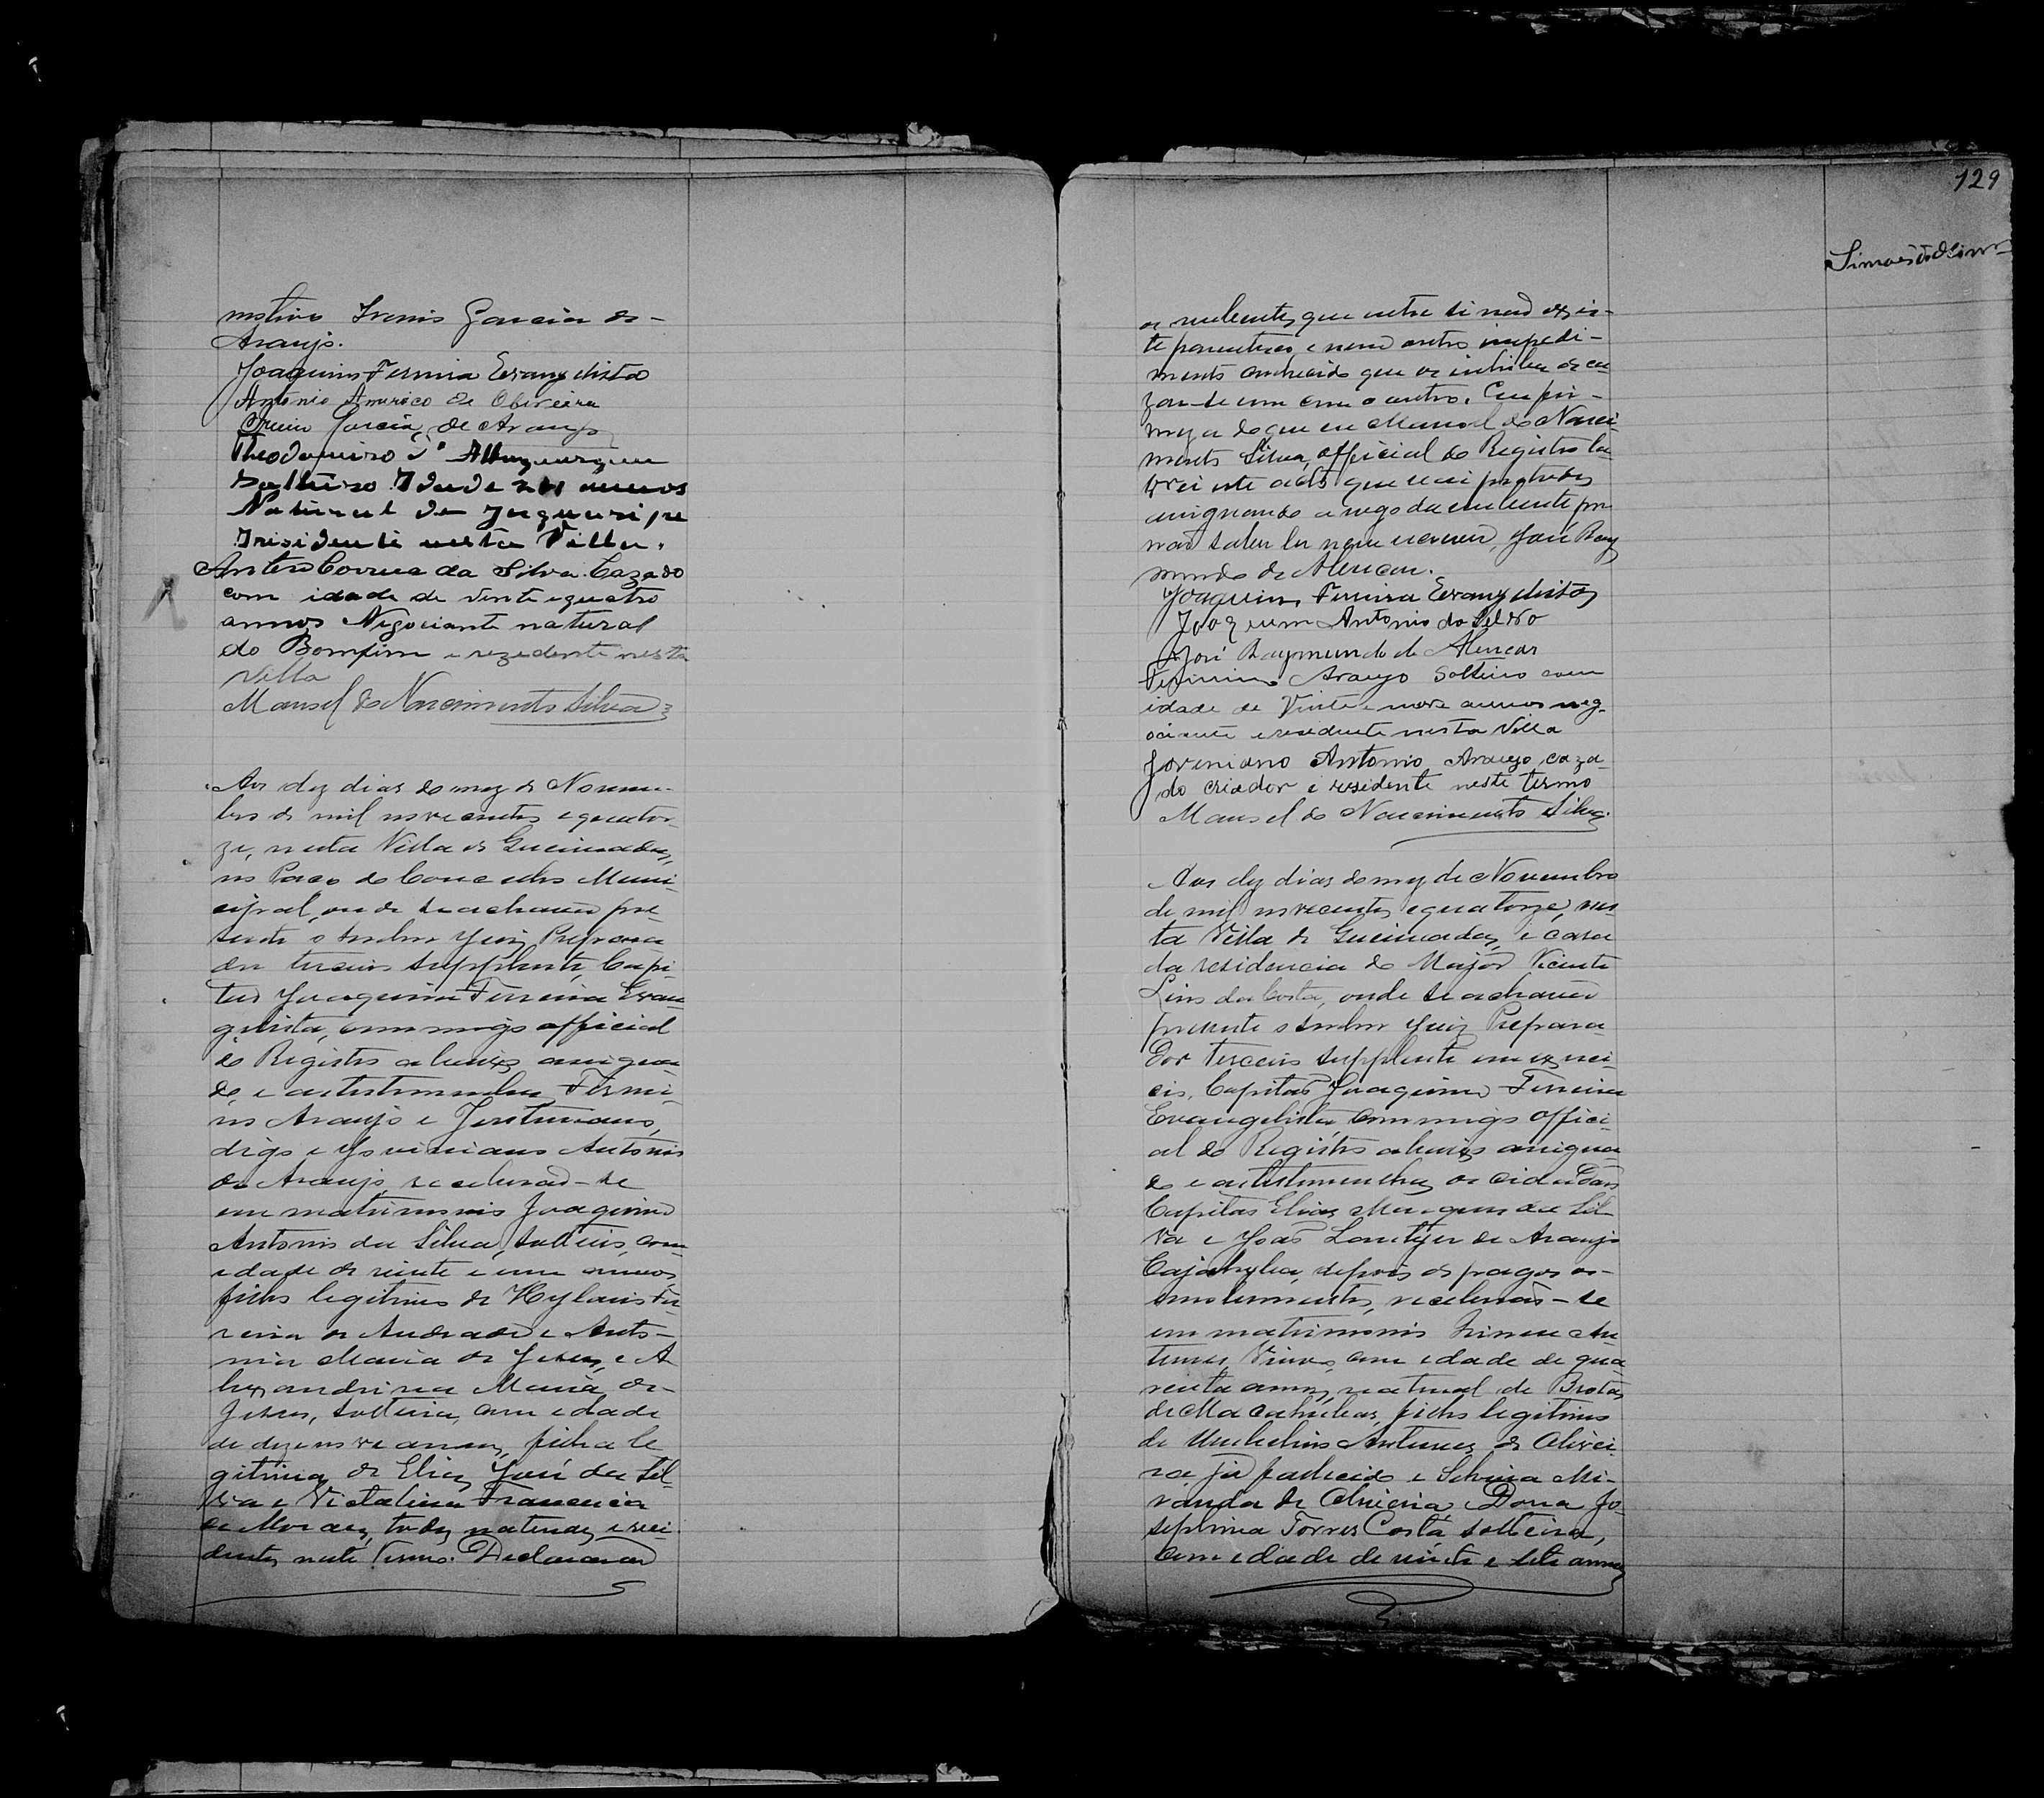 motivo Irenio Garcia de
Araujo.
Joaquim Ferreira Evangelista
Antonio Americo de Oliveira
Irenio Garcia de Araujo
Theodomiro d'Albuquerque
Solteiro Idade annos
Natural de Jaguaripe
residente nesta Villa.
Antero Correia da Silva Cazado
com idade de vinte e quatro
annos Negociante natural
do Bomfim e rezidente nesta
Villa
Manoel do Nascimento Silva
Aos dez dias do mez de Novem-
bro de mil novecentos e quator-
ze, nesta Villa de Queimadas,
no Paço do Concelho Muni-
cipal, onde se achava pre-
sente o senhor Juiz Prepara-
dor terceiro supplente, Capi-
tão Joaquim Ferreira Evan-
gelista, commigo official
do Registro abaixo assigna-
do, e as testemunhas Firmi-
no Araujo e Justiniano,
digo e Joviniano Antonio
de Araujo, receberão-se
em matrimonio Joaquim
Antonio da Silva, solteiro, com
edade de vinte e um annos,
filho legitimo de Fer-
reira de Andrade e Anto-
nia Maria de Jesus, e A-
lexandrina Maria de
Jesus, solteira, com edade
de dezenove annos, filha le-
gitima de Elias José da Sil-
va e Victalina Francisca
de Moraes, todos naturaes e resi-
dentes neste Termo. Declararão
129
Simões
os nubentes que entre si não exis-
te parentesco, e nem outro impedi-
mento conhecido que os inhiba de ca-
zar-se um com o outro. Em fir-
meza do que eu Manoel do Nasci-
mento Silva, official do Registro la-
vrei este acto que vai por todos
assignando a rogo da nubente por
não saber ler nem escrever, José Ray
mundo de Alencar.
Joaquim Ferreira Evangelista
Joaquim Antonio da Silva
José Raymundo de Alencar
Firmino Araujo Solteiro com
idade de Vinte e nove annos neg-
ociante e residente nesta Villa
Joviniano Antonio Araujo, caza-
do criador e residente neste termo
Manoel do Nascimento Silva
Aos dez dias do mez de Novembro
de mil novecentos e quatorze, nes-
ta Villa de Queimadas, e casa
da residencia do Major Vicente
Lins da Costa, onde se achava
presente o senhor Juiz Prepara-
dor terceiro supplente em exerci-
cio, Capitão Joaquim Ferreira
Evangelista, commigo offici-
al do Registro abaixo assigna-
do e as testemunhas os cidadãos
Capitão Elias Marques da Sil-
va e João de Araujo
Cajahyba, depois de pagos os
emolumentos, receberão-se
em matrimonio An-
tunes, Viuvo, com edade de qua-
renta annos, natural de Brotas
de Macahubas, filho legitimo
de Umbelino Antunes de Olivei-
ra já fallecido e Silvina Mi-
randa de Oliveira, e Dona Jo-
sephina Torres Costa solteira,
com edade de vinte e sete annos